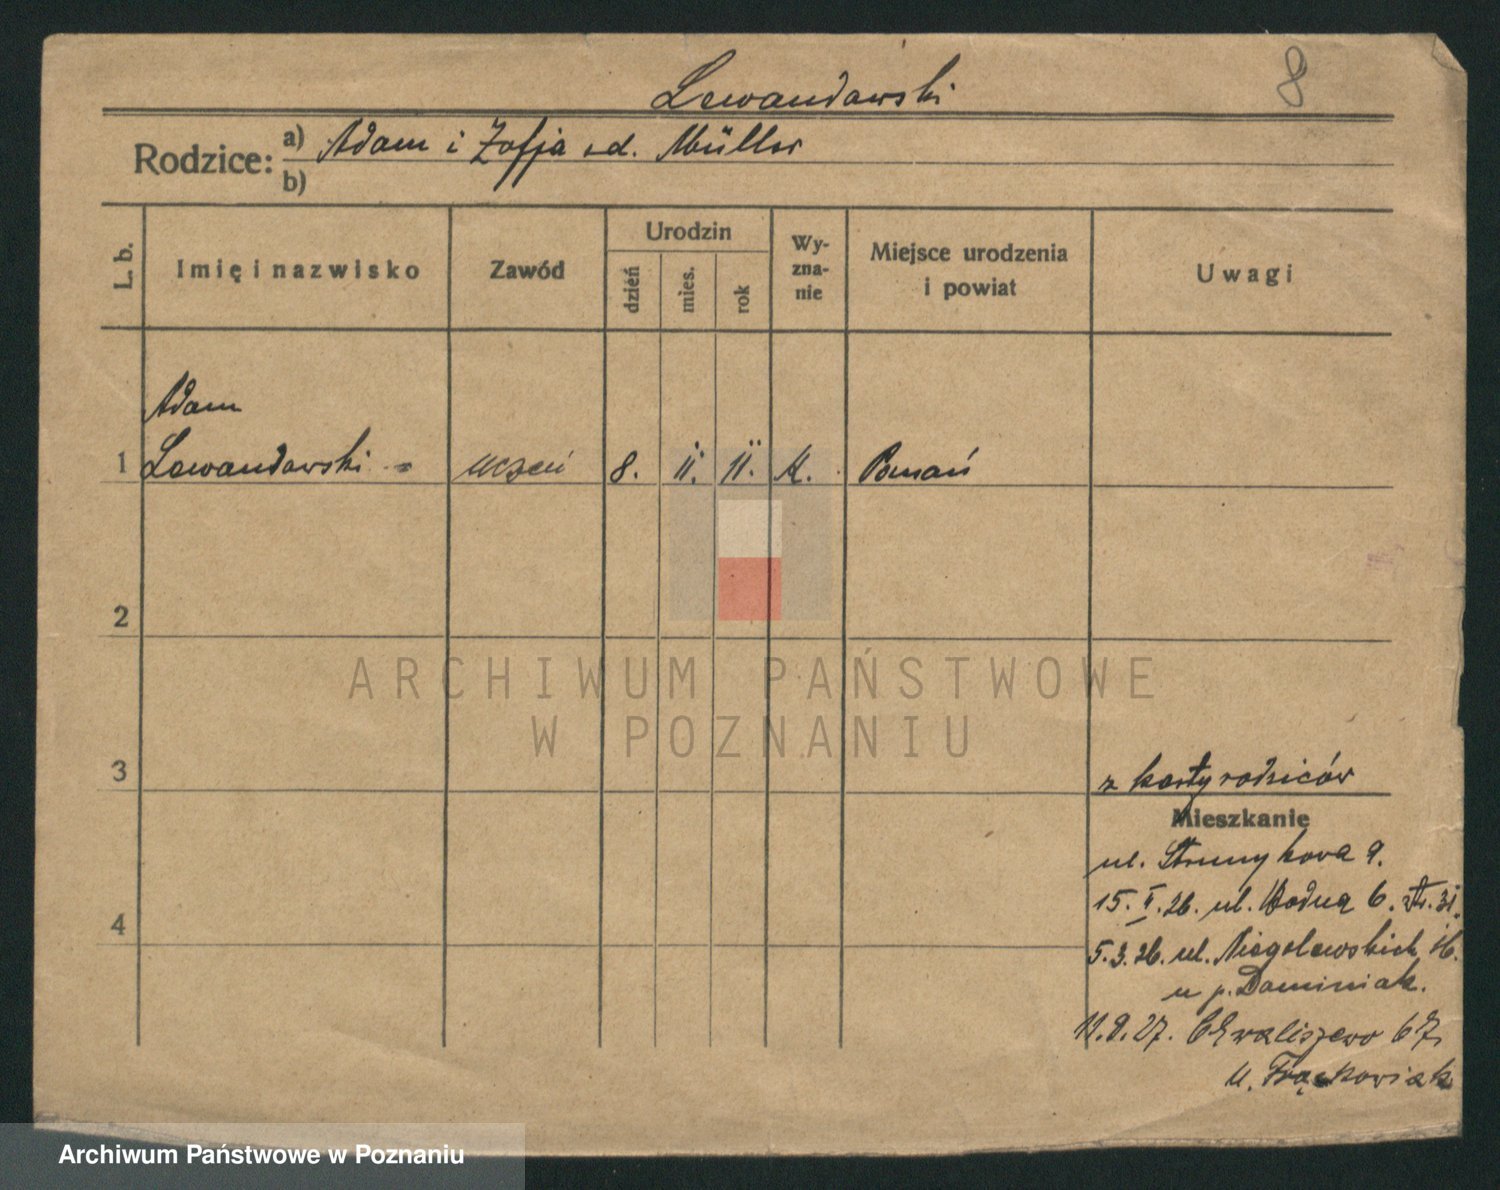 Lewandowski
8
Rodzice: a) Adam i Zofja Müller
b)
L. b. Imię i nazwisko Zawód Urodzin dzień mies. rok Wy-zna-nie Miejsce urodzenia i powiat Uwagi
Adam
1 Lewandowski uczeń 8. II. 11. K. Poznań
2
ARCHIWUM PAŃSTWOWE
W POZNANIU
3
z karty rodziców
Mieszkanie
ul. 9.
4
15. II. 26. ul. Wodna 6.
5.3.26. ul. Niegolewskich
u p. Dominiak.
11.9.27. Chwaliszewo 67
u. Frąckowiak
Archiwum Państwowe w Poznaniu